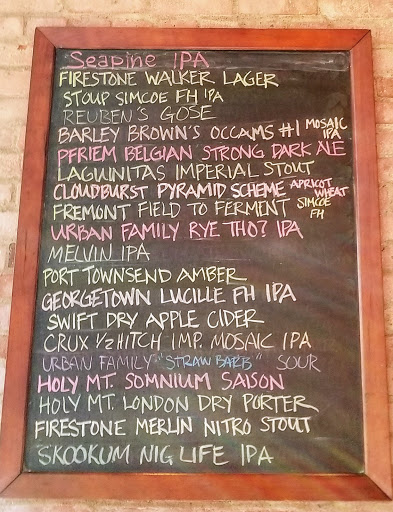 Seapine IPA
FIRESTONE WALKER LAGER
STOUP SIMCOE FH IPA
REUBEN'S GOSE
BARLEY BROWN'S OCCAMS #1 MOSAIC IPA
PFRIEM BELGIAN STRONG DARK ALE
LAGUINITAS IMPERIAL STOUT
CLOUDBURST PYRAMID SCHEME APRICOT WHEAT
FREMONT FIELD TO FERMENT SIMCOE FH
URBAN FAMILY RYE THO? IPA
MELVIN IPA
PORT TOWNSEND AMBER
GEORGETOWN LUCILLE FH IPA
SWIFT DRY APPLE CIDER
CRUX 1/2 HITCH IMP. MOSAIC IPA
URBAN FAMILY "STRAW BARB" SOUR
HOLY MT. SOMNIUM SAISON
HOLY MT. LONDON DRY PORTER
FIRESTONE MERLIN NITRO STOUT
SKOOKUM NIG LIFE IPA